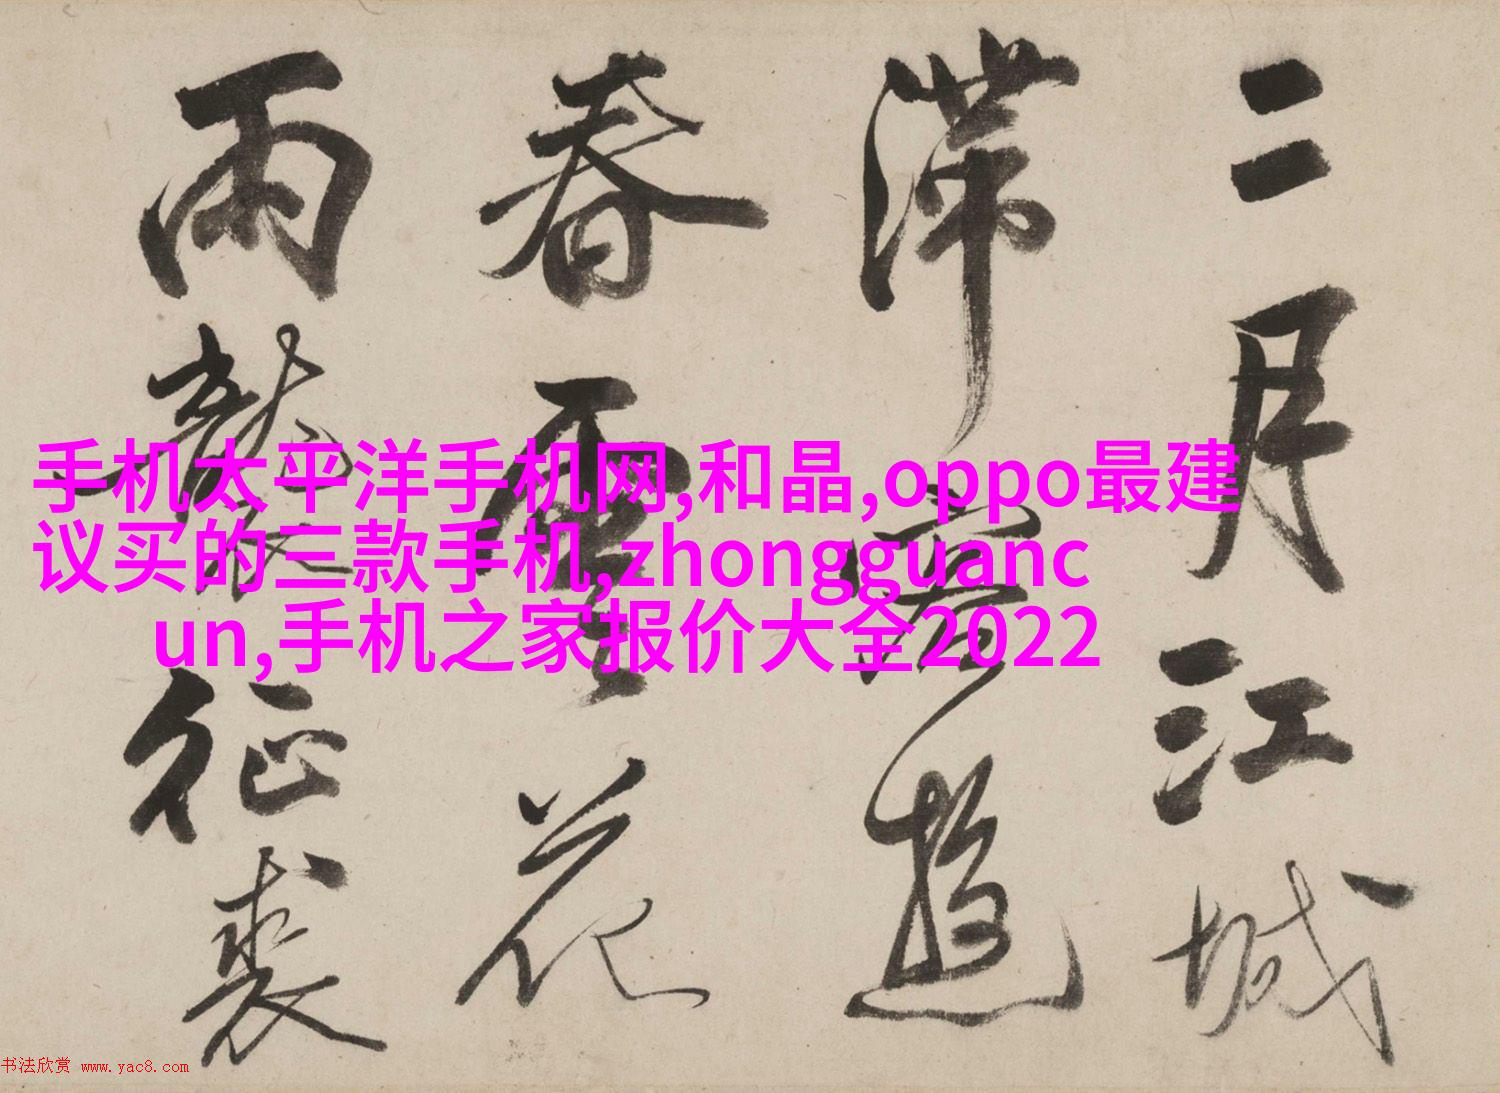 二月江城
滞客遊
春雲花
雨襲征裘
手机太平洋手机网,和晶,oppo最建
议买的三款手机,zhongguanc
un,手机之家报价大全2022
书法欣赏 www.yac8.com